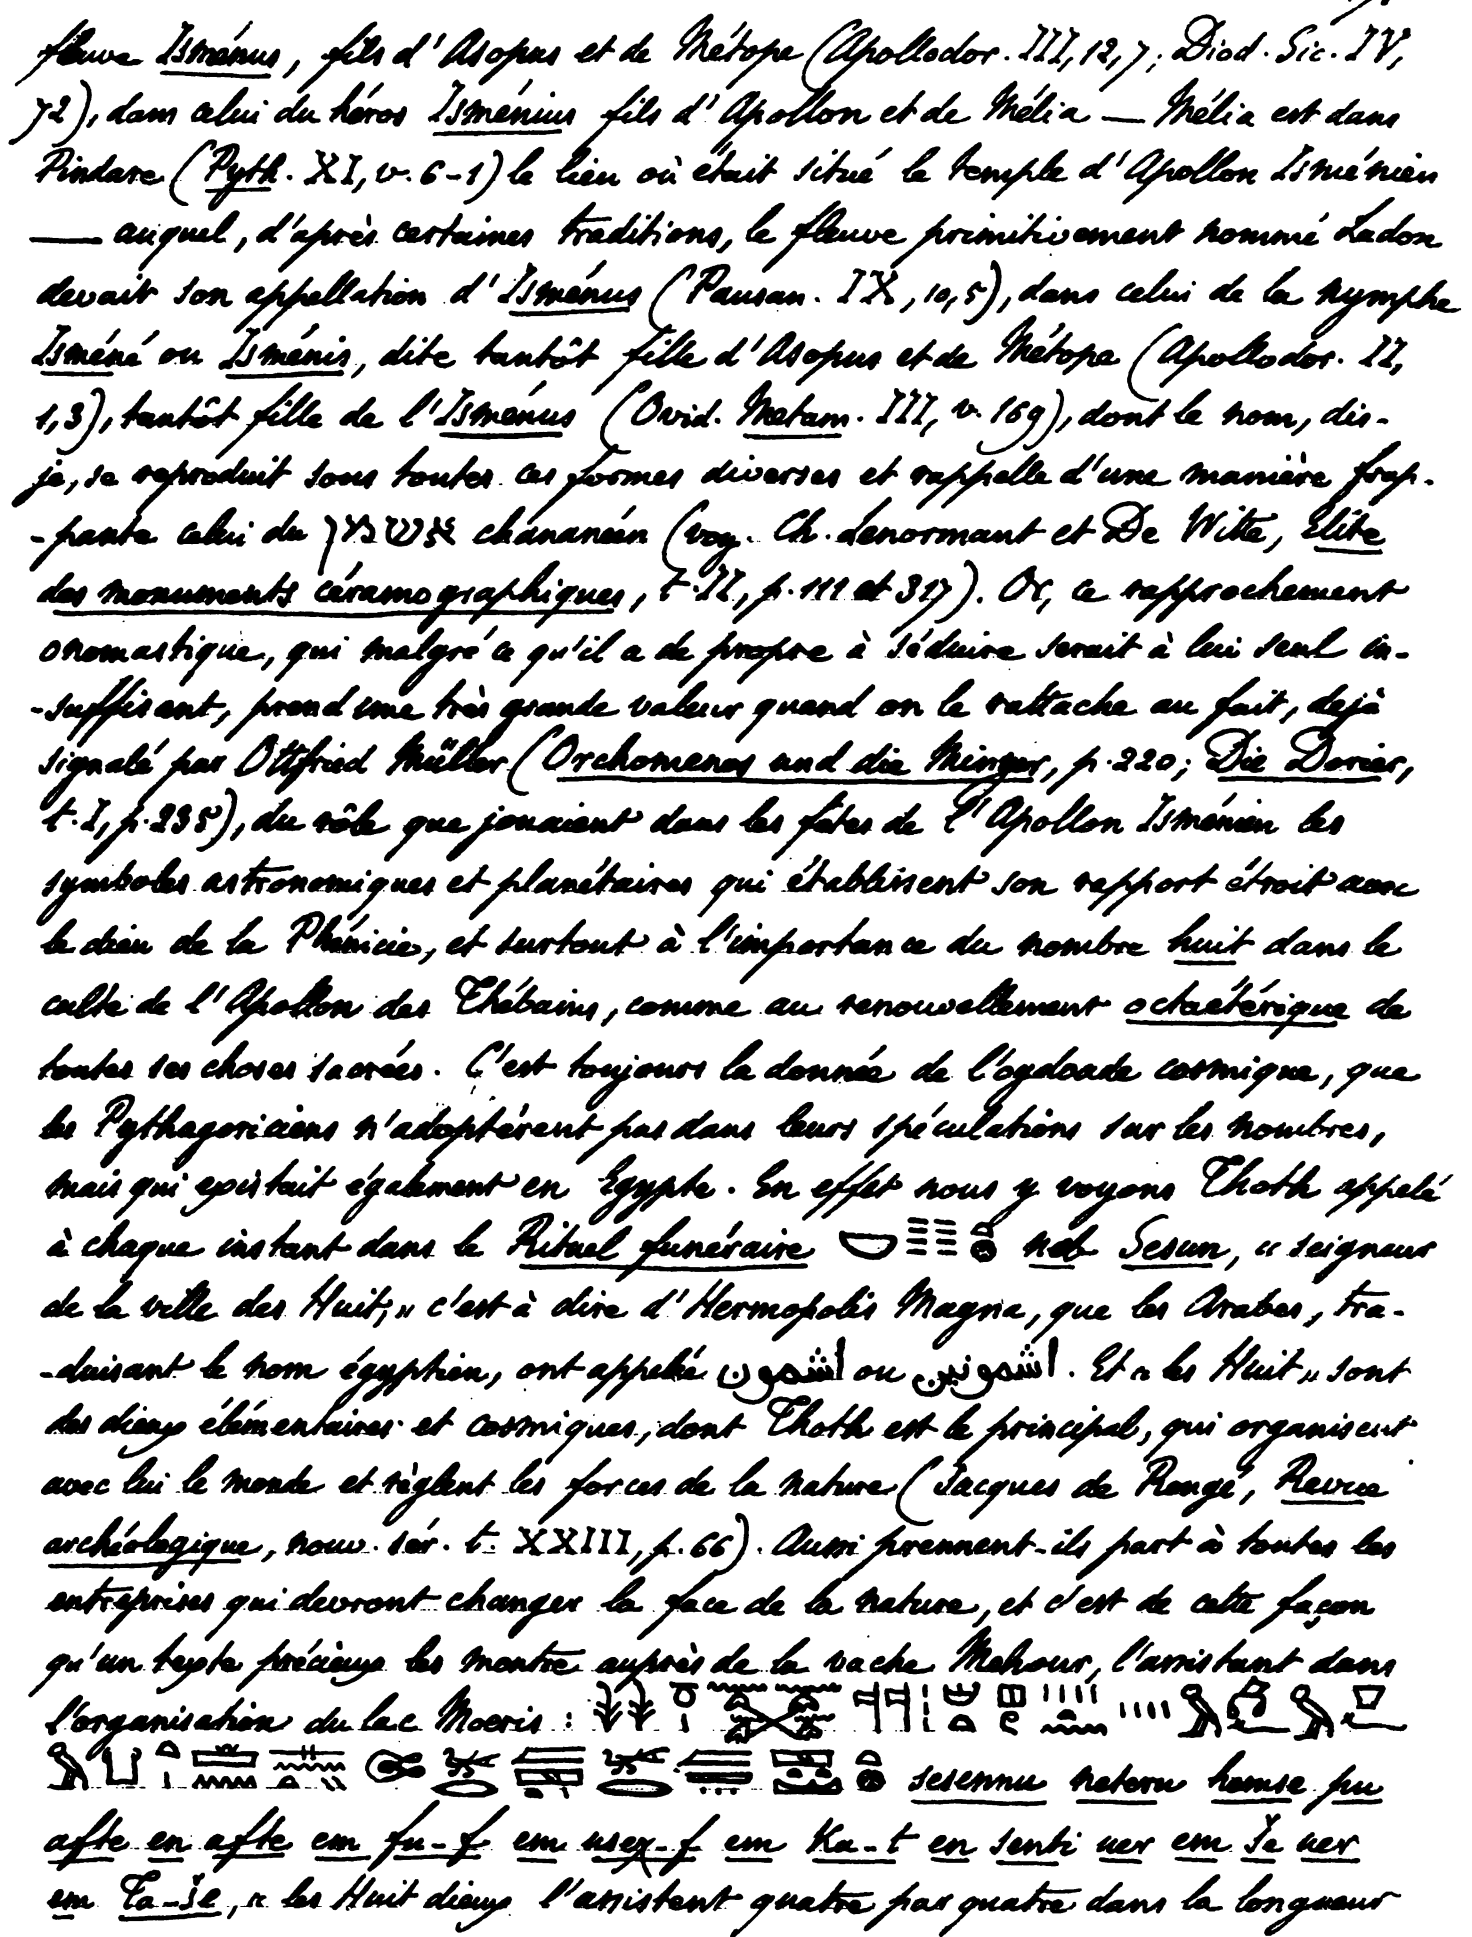 fleuve Isménus, fils d'Asopus et de Métope (Apollodor. III, 12, 7; Diod. Sic. IV,
72), dans celui du héros Isménius fils d'Apollon et de Mélia — Mélia est dans
Pindare (Pyth. XI, v. 6-1) le lieu où était situé le temple d'Apollon Isménien
— auquel, d'après certaines traditions, le fleuve primitivement nommé Ladon
devait son appellation d'Isménus (Pausan. IX, 10, 5), dans celui de la nymphe
Isméné ou Isménis, dite tantôt fille d'Asopus et de Métope (Apollodor. II,
1, 3), tantôt fille de l'Isménus (Ovid. Metam. III, v. 169), dont le nom, dis-
je, se reproduit sous toutes ces formes diverses et rappelle d'une manière frap-
-pante celui du אשמן chananéen (voy. Ch. Lenormant et De Witte, Elite
des monuments céramographiques, t. II, p. 111 et 317). Or, ce rapprochement
onomastique, qui malgré ce qu'il a de propre à séduire serait à lui seul in-
-suffisant, prend une très grande valeur quand on le rattache au fait, dejà
signalé par Ottfried Müller (Orchomenos und die Minyer, p. 220; Die Dorier,
t. I, p. 235), du rôle que jouaient dans les fêtes de l'Apollon Isménien les
symboles astronomiques et planétaires qui établissent son rapport étroit avec
le dieu de la Phénicie, et surtout à l'importance du nombre huit dans le
culte de l'Apollon des Thébains, comme au renouvellement octaétérique de
toutes ses choses sacrées. C'est toujours la donnée de l'ogdoade cosmique, que
les Pythagoriciens n'adoptèrent pas dans leurs spéculations sur les nombres,
mais qui existait également en Egypte. En effet nous y voyons Thoth appelé
à chaque instant dans le Rituel funéraire neb Sesun, « seigneur
de la ville des Huit, » c'est à dire d'Hermopolis Magna, que les Arabes, tra-
-duisant le nom égyptien, ont appelée أشمون ou أشمونين. Et « les Huit » sont
des dieux élémentaires et cosmiques, dont Thoth est le principal, qui organisent
avec lui le monde et règlent les forces de la nature (Jacques de Rougé, Revue
archéologique, nouv. sér. t. XXIII, p. 66). Aussi prennent-ils part à toutes les
entreprises qui devront changer la face de la nature, et c'est de cette façon
qu'un texte précieux les montre auprès de la vache Mehour, l'assistant dans
l'organisation du lac Moeris :
sesennu neteru hemse pu
afte en afte em fu-f em useχ-f em Ka-t en senti uer em še uer
em Ta-še, « les Huit dieux l'assistent quatre par quatre dans la longueur